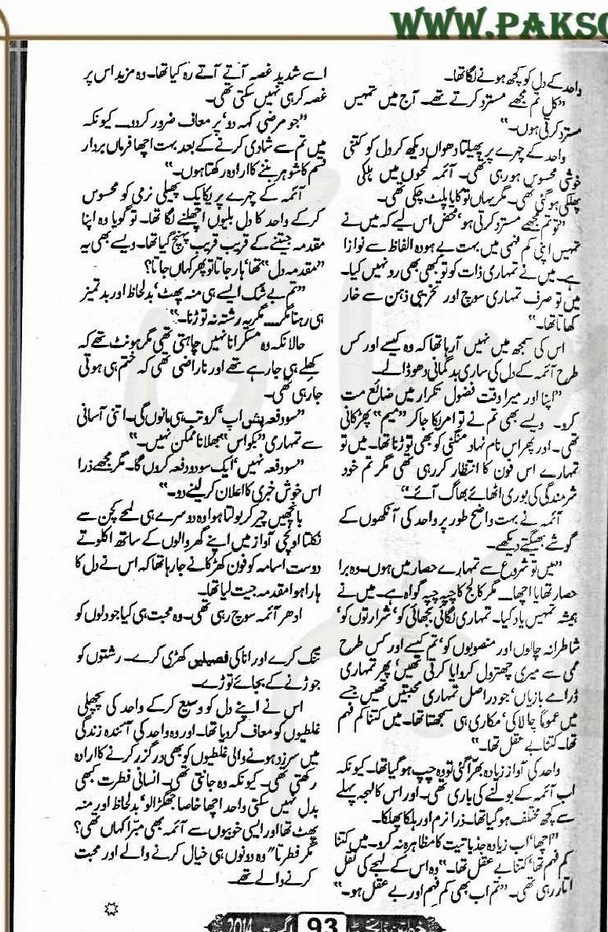 WWW.PAKSO
واحد کے دل کو کچھ ہونے لگا تھا۔
”کل تم مجھے مسترد کرتے تھے۔ آج میں تمہیں
مسترد کرتی ہوں۔“
واحد کے چہرے پر پھیلتا دھواں دیکھ کر دل کو کتنی
خوشی محسوس ہو رہی تھی۔ آئمہ لمحوں میں ہلکی
پھلکی ہو گئی تھی۔ مگر یہاں تو کایا پلٹ چکی تھی۔
”تو تم مجھے مسترد کرتی ہو، محض اس لیے کہ میں نے
تمہیں اپنی کم فہمی میں بہت بے ہودہ الفاظ سے نوازا
ہے۔ میں نے تمہاری ذات کو تو کبھی بھی رد نہیں کیا۔
میں تو صرف تمہاری سوچ اور تخریبی ذہن سے خار
کھاتا تھا۔“
اس کی سمجھ میں نہیں آ رہا تھا کہ وہ کیسے اور کس
طرح آئمہ کے دل کی ساری بدگمانی دھو ڈالے۔
”اپنا اور میرا وقت فضول تکرار میں ضائع مت
کرو۔ ویسے بھی تم نے تو امریکا جا کر ”میم“ پھڑکانی
تھی۔ اور پھر اس نام نہاد منگنی کو بھی توڑنا تھا۔ میں تو
تمہارے اس فون کا انتظار کر رہی تھی مگر تم خود
شرمندگی کی بوری اٹھائے بھاگ آئے۔“
آئمہ نے بہت واضح طور پر واحد کی آنکھوں کے
گوشے بھیگتے دیکھے۔
”میں تو شروع سے تمہارے حصار میں ہوں۔ وہ برا
حصار تھا یا اچھا۔ مگر کالج کا چپہ چپہ گواہ ہے۔ میں نے
ہمیشہ تمہیں یاد کیا۔ تمہاری لگائی بجھائی کو، شرارتوں کو،
شاطرانہ چالوں اور منصوبوں کو، تم کیسے اور کس طرح
ممی سے میری چھترول کروایا کرتی تھیں، پھر تمہاری
ڈرامے بازیاں، جو دراصل تمہاری محبتیں تھیں جسے
میں عموماً چالاکی، مکاری ہی سمجھتا تھا۔ میں کتنا کم فہم
تھا۔ کتنا بے عقل تھا۔“
واحد کی آواز زیادہ بھرا گئی تو وہ چپ ہو گیا تھا۔ کیونکہ
اب آئمہ کے بولنے کی باری تھی۔ اور اس کا لہجہ پہلے
سے کچھ مختلف ہو گیا تھا۔ ذرا نرم اور ہلکا پھلکا۔
”اچھا، اب زیادہ جذباتیت کا مظاہرہ نہ کرو۔ میں کتنا
کم فہم تھا، کتنا بے عقل تھا۔“ وہ اس کے لہجے کی نقل
اتار رہی تھی۔ ”تم اب بھی کم فہم اور بے عقل ہو۔“
اسے شدید غصہ آتے آتے رہ گیا تھا۔ وہ مزید اس پر
غصہ کر ہی نہیں سکتی تھی۔
”جو مرضی کہہ دو، پر معاف ضرور کر دو۔۔۔ کیونکہ
میں تم سے شادی کرنے کے بعد بہت اچھا فرماں بردار
قسم کا شوہر بننے کا ارادہ رکھتا ہوں۔“
آئمہ کے چہرے پر یکایک پھیلی نرمی کو محسوس
کر کے واحد کا دل بلیوں اچھلنے لگا تھا۔ تو گویا وہ اپنا
مقدمہ جیتنے کے قریب قریب پہنچ گیا تھا۔ ویسے بھی یہ
”مقدمہ دل“ تھا، ہار جاتا تو پھر کہاں جاتا؟
”تم بے شک ایسے ہی منہ پھٹ، بدلحاظ اور بدتمیز
ہی رہنا مگر۔۔۔ مگر یہ رشتہ نہ توڑنا۔“
حالانکہ وہ مسکرانا نہیں چاہتی تھی مگر ہونٹ تھے کہ
کھلے ہی جا رہے تھے اور ناراضی تھی کہ ختم ہی ہوتی
جا رہی تھی۔
”سو دفعہ پش اپ، کرو تب ہی مانوں گی۔ اتنی آسانی
سے تمہاری ”بکواس“ بھلانا ممکن نہیں۔“
”سو دفعہ نہیں، ایک سو دو دفعہ کروں گا۔ مگر مجھے ذرا
اس خوش خبری کا اعلان کر لینے دو۔“
باچھیں چیر کر بولتا ہوا وہ دوسرے ہی لمحے کچن سے
نکلتا اونچی آواز میں اپنے گھر والوں کے ساتھ اکلوتے
دوست اسامہ کو فون کھڑکانے جا رہا تھا کہ اس نے دل کا
ہارا ہوا مقدمہ جیت لیا تھا۔
ادھر آئمہ سوچ رہی تھی۔ وہ محبت ہی کیا جو دلوں کو
تنگ کرے اور انا کی فصیلیں کھڑی کرے۔ رشتوں کو
جوڑنے کے بجائے توڑے۔
اس نے اپنے دل کو وسیع کر کے واحد کی پچھلی
غلطیوں کو معاف کر دیا تھا۔ اور وہ واحد کی آئندہ زندگی
میں سرزد ہونے والی غلطیوں کو بھی درگزر کرنے کا ارادہ
رکھتی تھی۔ کیونکہ وہ جانتی تھی۔ انسانی فطرت کبھی
بدل نہیں سکتی واحد اچھا خاصا جھگڑالو، بدلحاظ اور منہ
پھٹ تھا اور ایسی خوبیوں سے آئمہ بھی مبرا کہاں تھی؟
مگر فطرتاً وہ دونوں ہی خیال کرنے والے اور محبت
کرنے والے تھے۔
93 اگست 2014